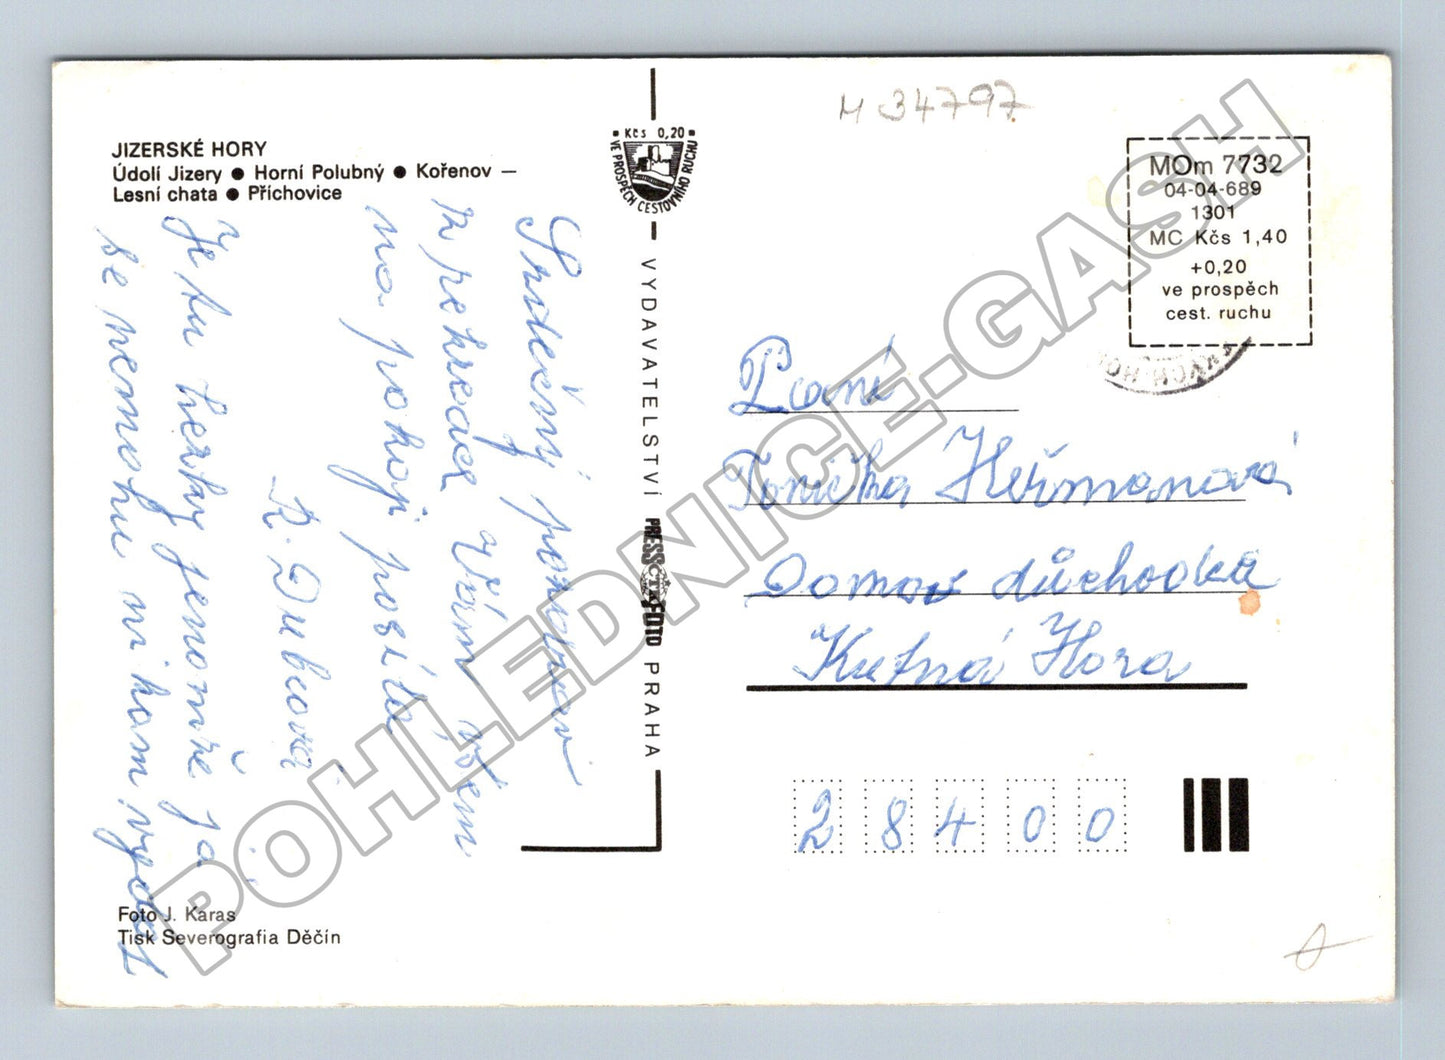 M 34797
JIZERSKÉ HORY
Údolí Jizery ● Horní Polubný ● Kořenov –
Lesní chata ● Příchovice
Kčs 0,20
VE PROSPĚCH CESTOVNÍHO RUCHU
VYDAVATELSTVÍ PRESSFOTO PRAHA
ČTK
Srdečný pozdrav
z rekreace Vám všem
na pokoji posílá
R. Dubcová
Je tu hezky jenomže já
se nemohu nikam vydat
Foto J. Karas
Tisk Severografia Děčín
MOm 7732
04-04-689
1301
MC Kčs 1,40
+0,20
ve prospěch
cest. ruchu
Paní
Tonička Heřmanová
Domov důchodců
Kutná Hora
28400
POHLEDNICE-GASH